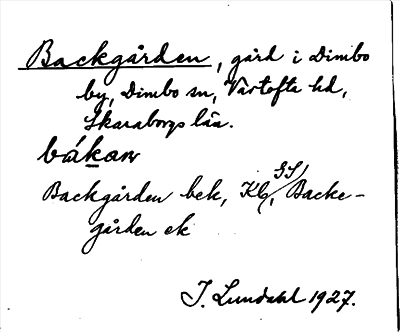 Backgården, gård i Dimbo
by, Dimbo sn, Vartofta hd,
Skaraborgs län.
båkaɴ
Backgården bek, Kb, GS/ Backe-
gården ek
I. Lundahl 1927.